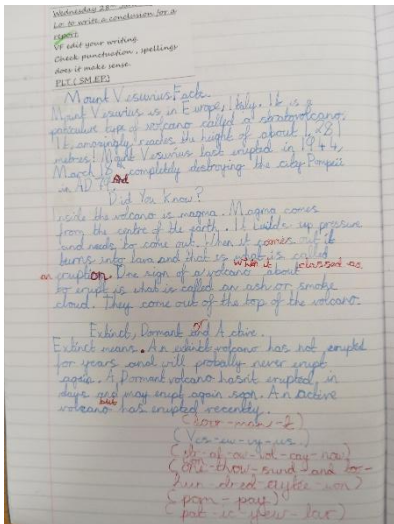 Wednesday 28th
Lo to write a conclusion for a
report
VF edit your writing.
Check punctuation, spellings
does it make sense
PLT (SM,EP)
Mount Vesuvius Facts.
Mount Vesuvius is in Europe, Italy. It is a
particular type of volcano called a stratovolcano.
It, amazingly, reaches the height of about 1,281
metres! Mount Vesuvius last erupted in 1944,
March 18th completely destroying the city Pompeii
in AD 79. And
Did You Know?
Inside the volcano is magma. Magma comes
from the centre of the earth. It builds up pressure
and needs to come out. When it comes out it
turns into lava and that is what is called
when it classed as
an eruption. One sign of a volcano about
to erupt is what is called an ash or smoke
cloud. They come out of the top of the volcano.
Extinct, Dormant and Active.
Extinct means. An extinct volcano has not erupted
for years and will probally never erupt
again. A Dormant volcano hasn't erupted in
days and may erupt again soon. An active
but
volcano has erupted recently.
(dor-man-t)
(Ves-ew-vy-us.)
(one-thow-sund-and too-
hun-dred-eytee-won)
(pom-pay)
(par-tic-yew-lar)